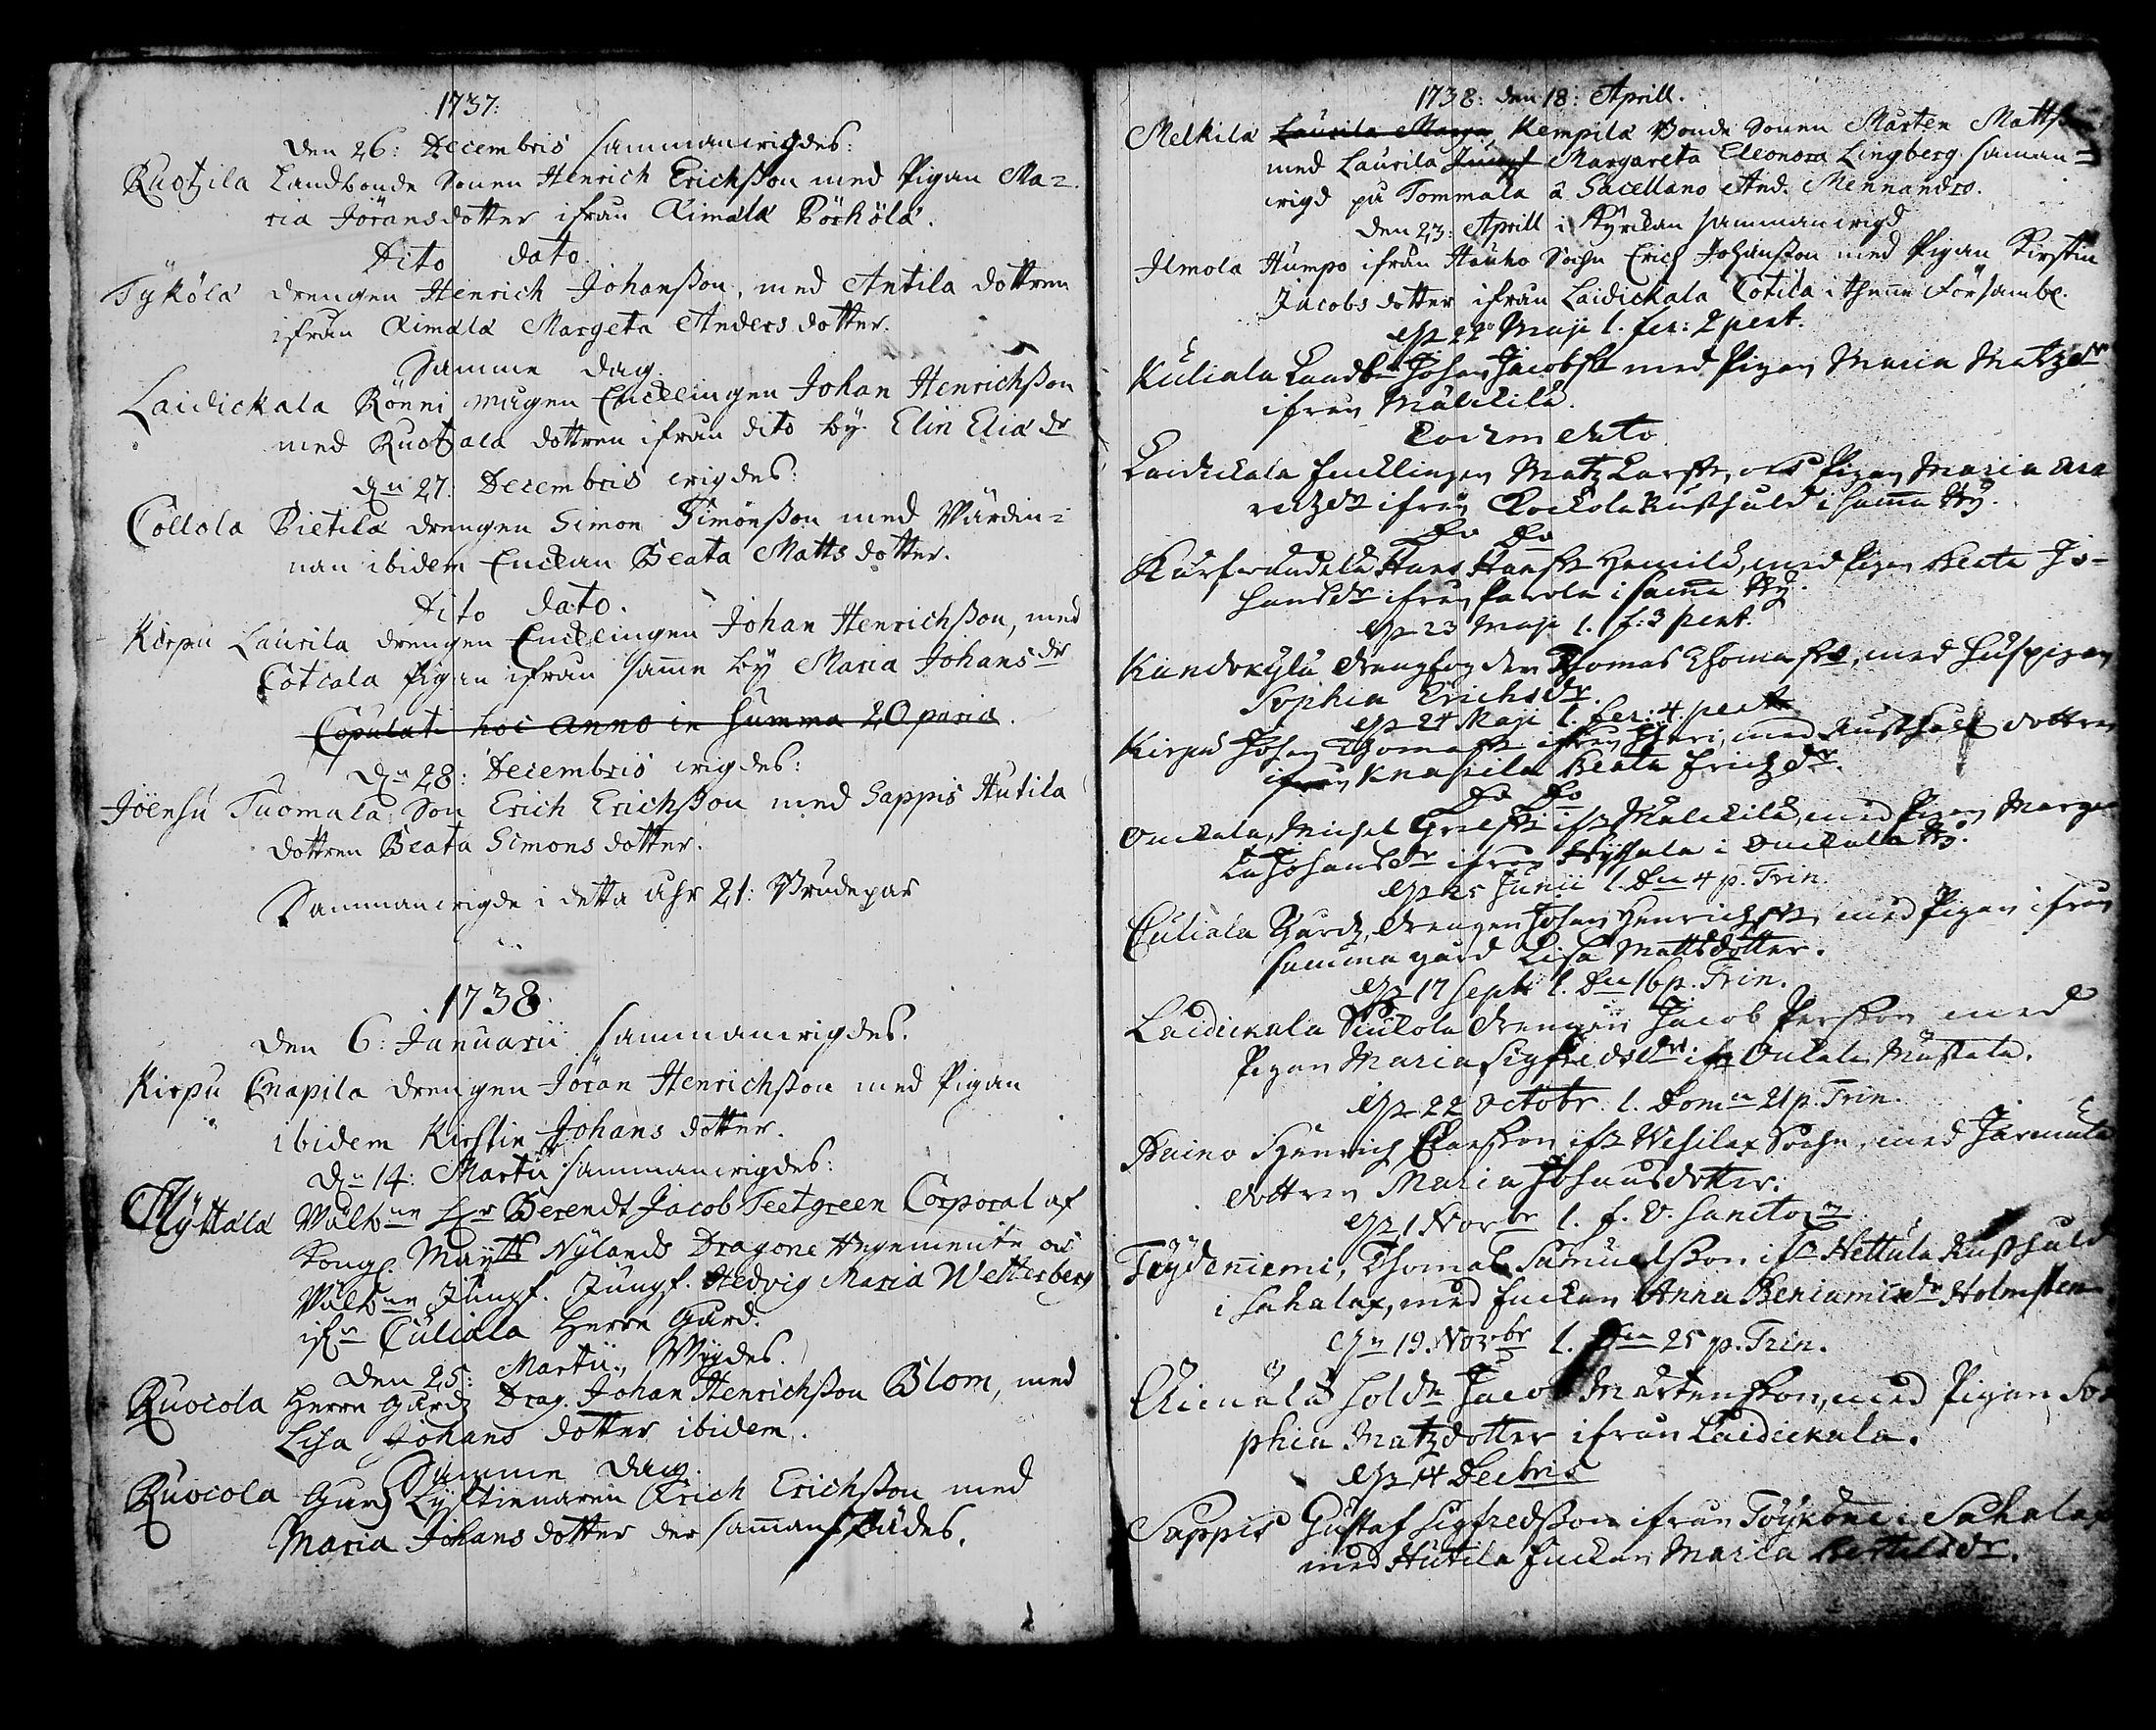 1737:
Den 26: Decembris sammanwigdes:
Ruotzila Landbonde Sonen Henrich Erichsson med Pigan Ma=
ria Jöransdotter ifrån Rimälä Pörhölä.
Dito dato.
Tÿkölä drengen Henrich Johansson, med Antila dottren
ifrån Rimälä Margeta Andersdotter.
Samme dag.
Laidickala Rönni mågen Encklingen Johan Henrichsson
med Ruotzala dottren ifrån dito by Elin Elia dr
dn 27: Decembris wigdes:
Collola Pietilä drengen Simon Simonsson med Wärdin=
nan ibidem Enckan Beata Matts dotter.
Dito dato.
Kirpu Laurila drengen Encklingen Johan Henrichsson, med
Cotiala Pigan ifrån samme by Maria Johans dr
Copulati hoc anno in summa 20 paria.
dn 28: Decembris wigdes:
Jöensu Tuomala Son Erich Erichsson med Sappis Hutila
dottren Beata Simons dotter.
Sammanwigde i detta åhr 21: Brudepar
1738.
Den 6: Januarii sammanwigdes.
Kirpu Cnapila drengen Jöran Henrichsson med Pigan
ibidem Kirstin Johans dotter.
dn 14: Martii sammanwigdes:
Mÿttälä Wälb:ne Hr Berendt Jacob Teetgreen Corporal af
Kongl Maytts Nÿlands Dragone Regemente och
Wälb:ne Jungf. Jungf. Hedvig Maria Wetterberg
ifrn Culiala Herre Gård.
Den 25: Martii, Wigdes.
Ruocola Herre Gårdz Drag. Johan Henrichsson Blom, med
Lisa Johans dotter ibidem.
Samme dag.
Ruocola Gårdz Lysttienaren Erich Erichsson med
Maria Johans dotter der samman
1738: den 18: Aprill.
Melkila Laurila Marga Kempila Bonde Sonen Mårten Mattsson
med Laurila Jungf Margareta Eleonora Lingberg samman=
wigd på Tommala à Sacellano And. Mennandro.
Den 23: Aprill i Kyrckan sammanwigd
Ilmola Humpo ifrån Hauho Sochn Erich Johansson med Pigan Kirstin
Jacobs dotter ifrån Laidickala Cotila i thenne Försambl.
22 Maji l. fer: 2 pent.
Kuliala Landb: Johan Jacobss: med Pigan Maria Matzdr
ifrån Mälckilä.
Eodem dato
Laidickala Encklingen Matz Larss:, och Pigan Maria
ifrån Råckola Rusthåld i samma by.
Do Do
Hans Hanss: med Pigan Beata Jo-
hansdr ifrån Parola i samma by.
23 Maji l. f: 3 pent.
Kandokylä Thomas Thomass:, med Huspigan
Sophia Erichsdr.
24 Maji l. fer: 4 pent
Kirpu Johan Thomass: ifrån med Rusthåll dottren
ifrån Knapila Beata Erichsdr.
Do Do
Onckala, Michel Grelss: ifr Mälckilä, med Pigan Marge
ta Johansdr ifrån i Onckala by.
25 Junii l. Dn 4 p. Trin.
Culiala Gårdz drengen Johan Henrichss: med Pigan ifrån
samma gård Lisa Mattsdotter.
17 Sept. l. Dn 16 p. Trin.
Laidickala drengen Jacob Persson med
Pigan Maria Sigfredsdr ifr Onkala Mustala.
22 Octobr. l. Domn 21 p. Trin.
Henrich Classon ifr Wesilax Sochn, med
dottren Maria Johansdotter.
1 Novbr l. f. O. Sanctor
Töydeniemi, Thomas Samuelsson ifr Hettula Rusthåld
i Sahalax, med Enckan Anna Beniaminsdr Holmsten
19. Novbr l. Dn 25 p. Trin.
Rimälä Sold: Jacob Mårtensson, med Pigan So
phia Matzdotter ifrån Laidickala.
4 Decbris
Sappis Gustaf Sigfredsson ifrån Töykäne i Sahalax
med Hutila Enckan Maria Bertelsdr.